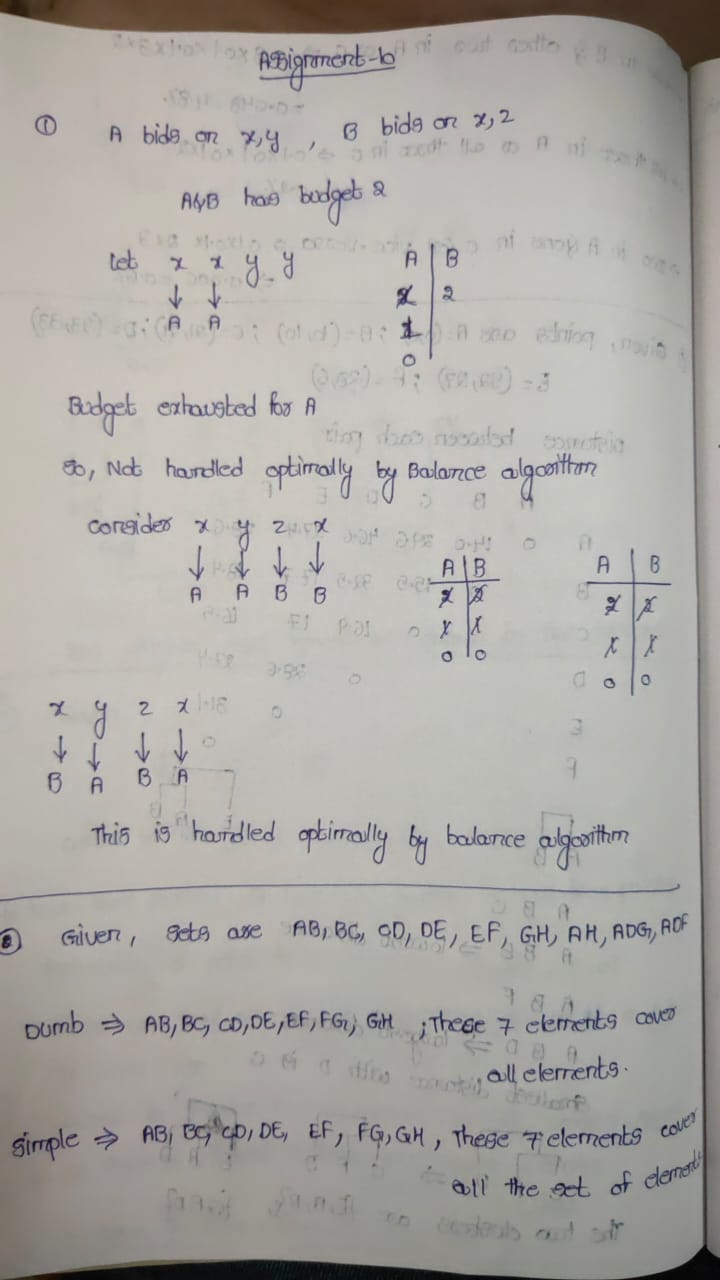 Assignment-6
① A bids on x,y , B bids on x,z
A&B has budget 2
Let x x y y
↓ ↓
A A
A | B
2 | 2
1
0
Budget exhausted for A
So, Not handled optimally by Balance algorithm
consider x y z x
↓ ↓ ↓ ↓
A A B B
A | B
2 | 2
1 | 1
0 | 0
A | B
2 | 2
1 | 1
0 | 0
x y z x
↓ ↓ ↓ ↓
B A B A
This is handled optimally by balance algorithm
② Given, sets are AB, BC, CD, DE, EF, GH, AH, ADG, ADF
Dumb ⇒ AB, BC, CD, DE, EF, FG, GH ; These 7 elements cover
all elements.
Simple ⇒ AB, BC, CD, DE, EF, FG, GH, These 7 elements cover
all the set of elements